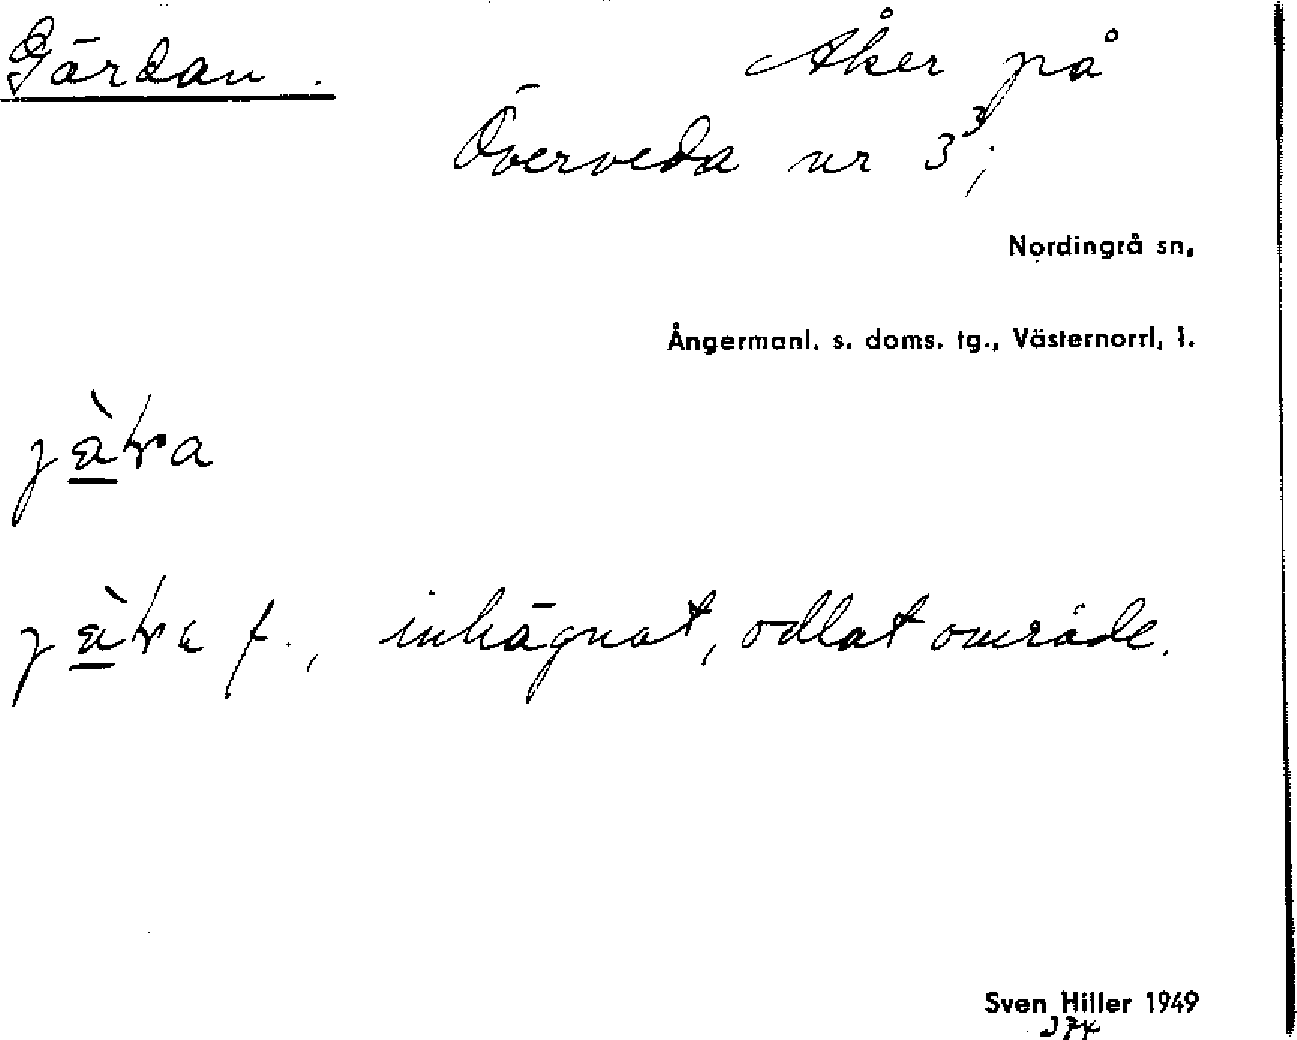 Gärdan. Åker på
Överveda nr 3³;
Nordingrå sn,
Ångermanl. s. doms. tg., Västernorrl, l.
f., inhägnat, odlat område.
Sven Hiller 1949
274